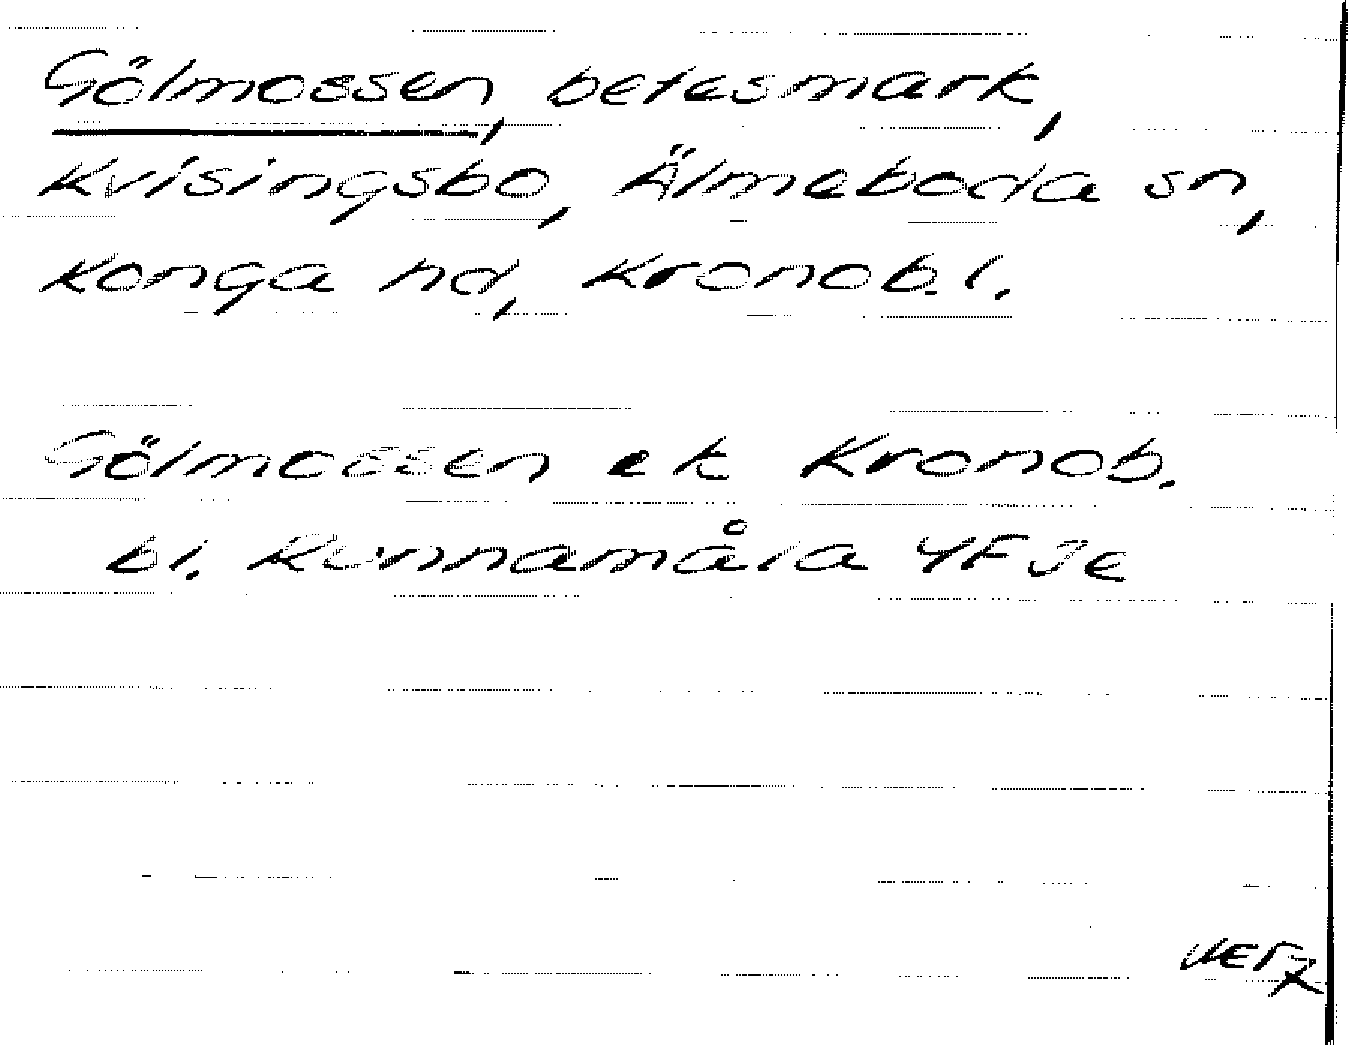 Gölmossen, betesmark,
Kvisingsbo, Älmeboda sn,
Konga hd, Kronob. l.
Gölmossen ek Kronob.
bl. Runnamåla YF Je
verz